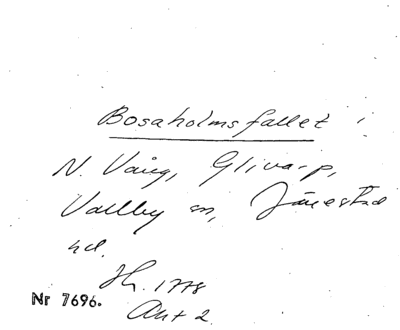 Bosaholmsfallet
N. Vång, Glivarp,
Vallby sn, Järrestad
hd.
Jh. 1778
Akt 2
Nr 7696.